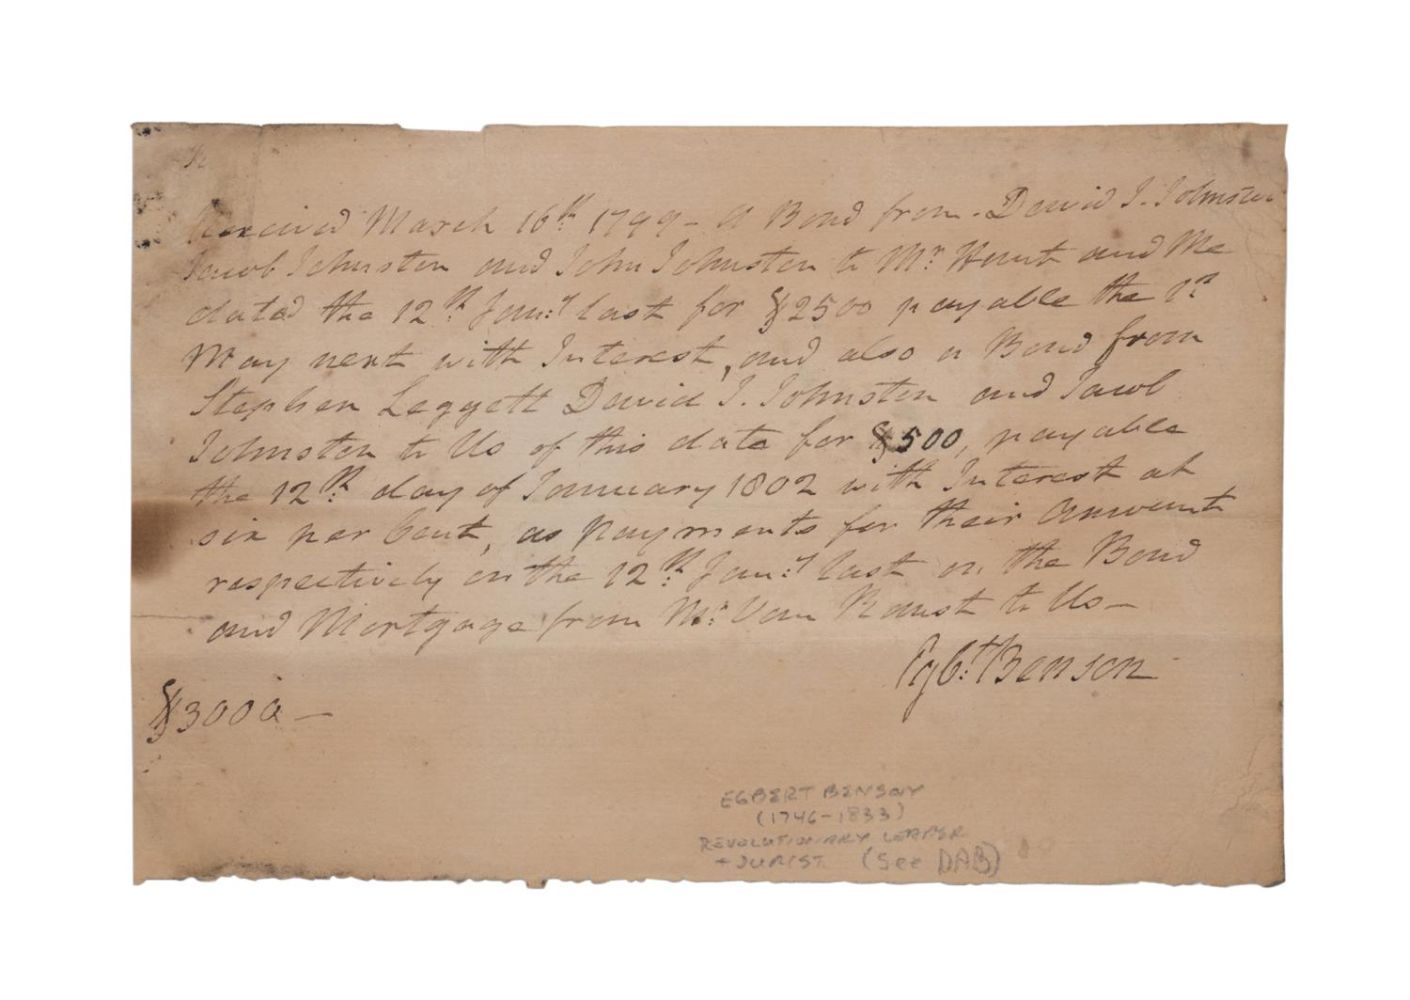 Received March 16th 1799 - A Bond from - David I. Johnston
Jacob Johnston and John Johnston to Mr. Hunt and Me
dated the 12th Jany last for $2500 payable the 1st
May next with Interest, and also a Bond from
Stephen Leggett David I. Johnston and Jacob
Johnston to Us of this date for $500, payable
the 12th day of January 1802 with Interest at
six per Cent, as payments for their Amount
respectively on the 12th Jany last on the Bond
and Mortgage from Mr. Van Ranst to Us -
Egbt. Benson
$3000 -
EGBERT BENSON
(1746-1833)
REVOLUTIONARY LEADER
+ JURIST (See DAB)